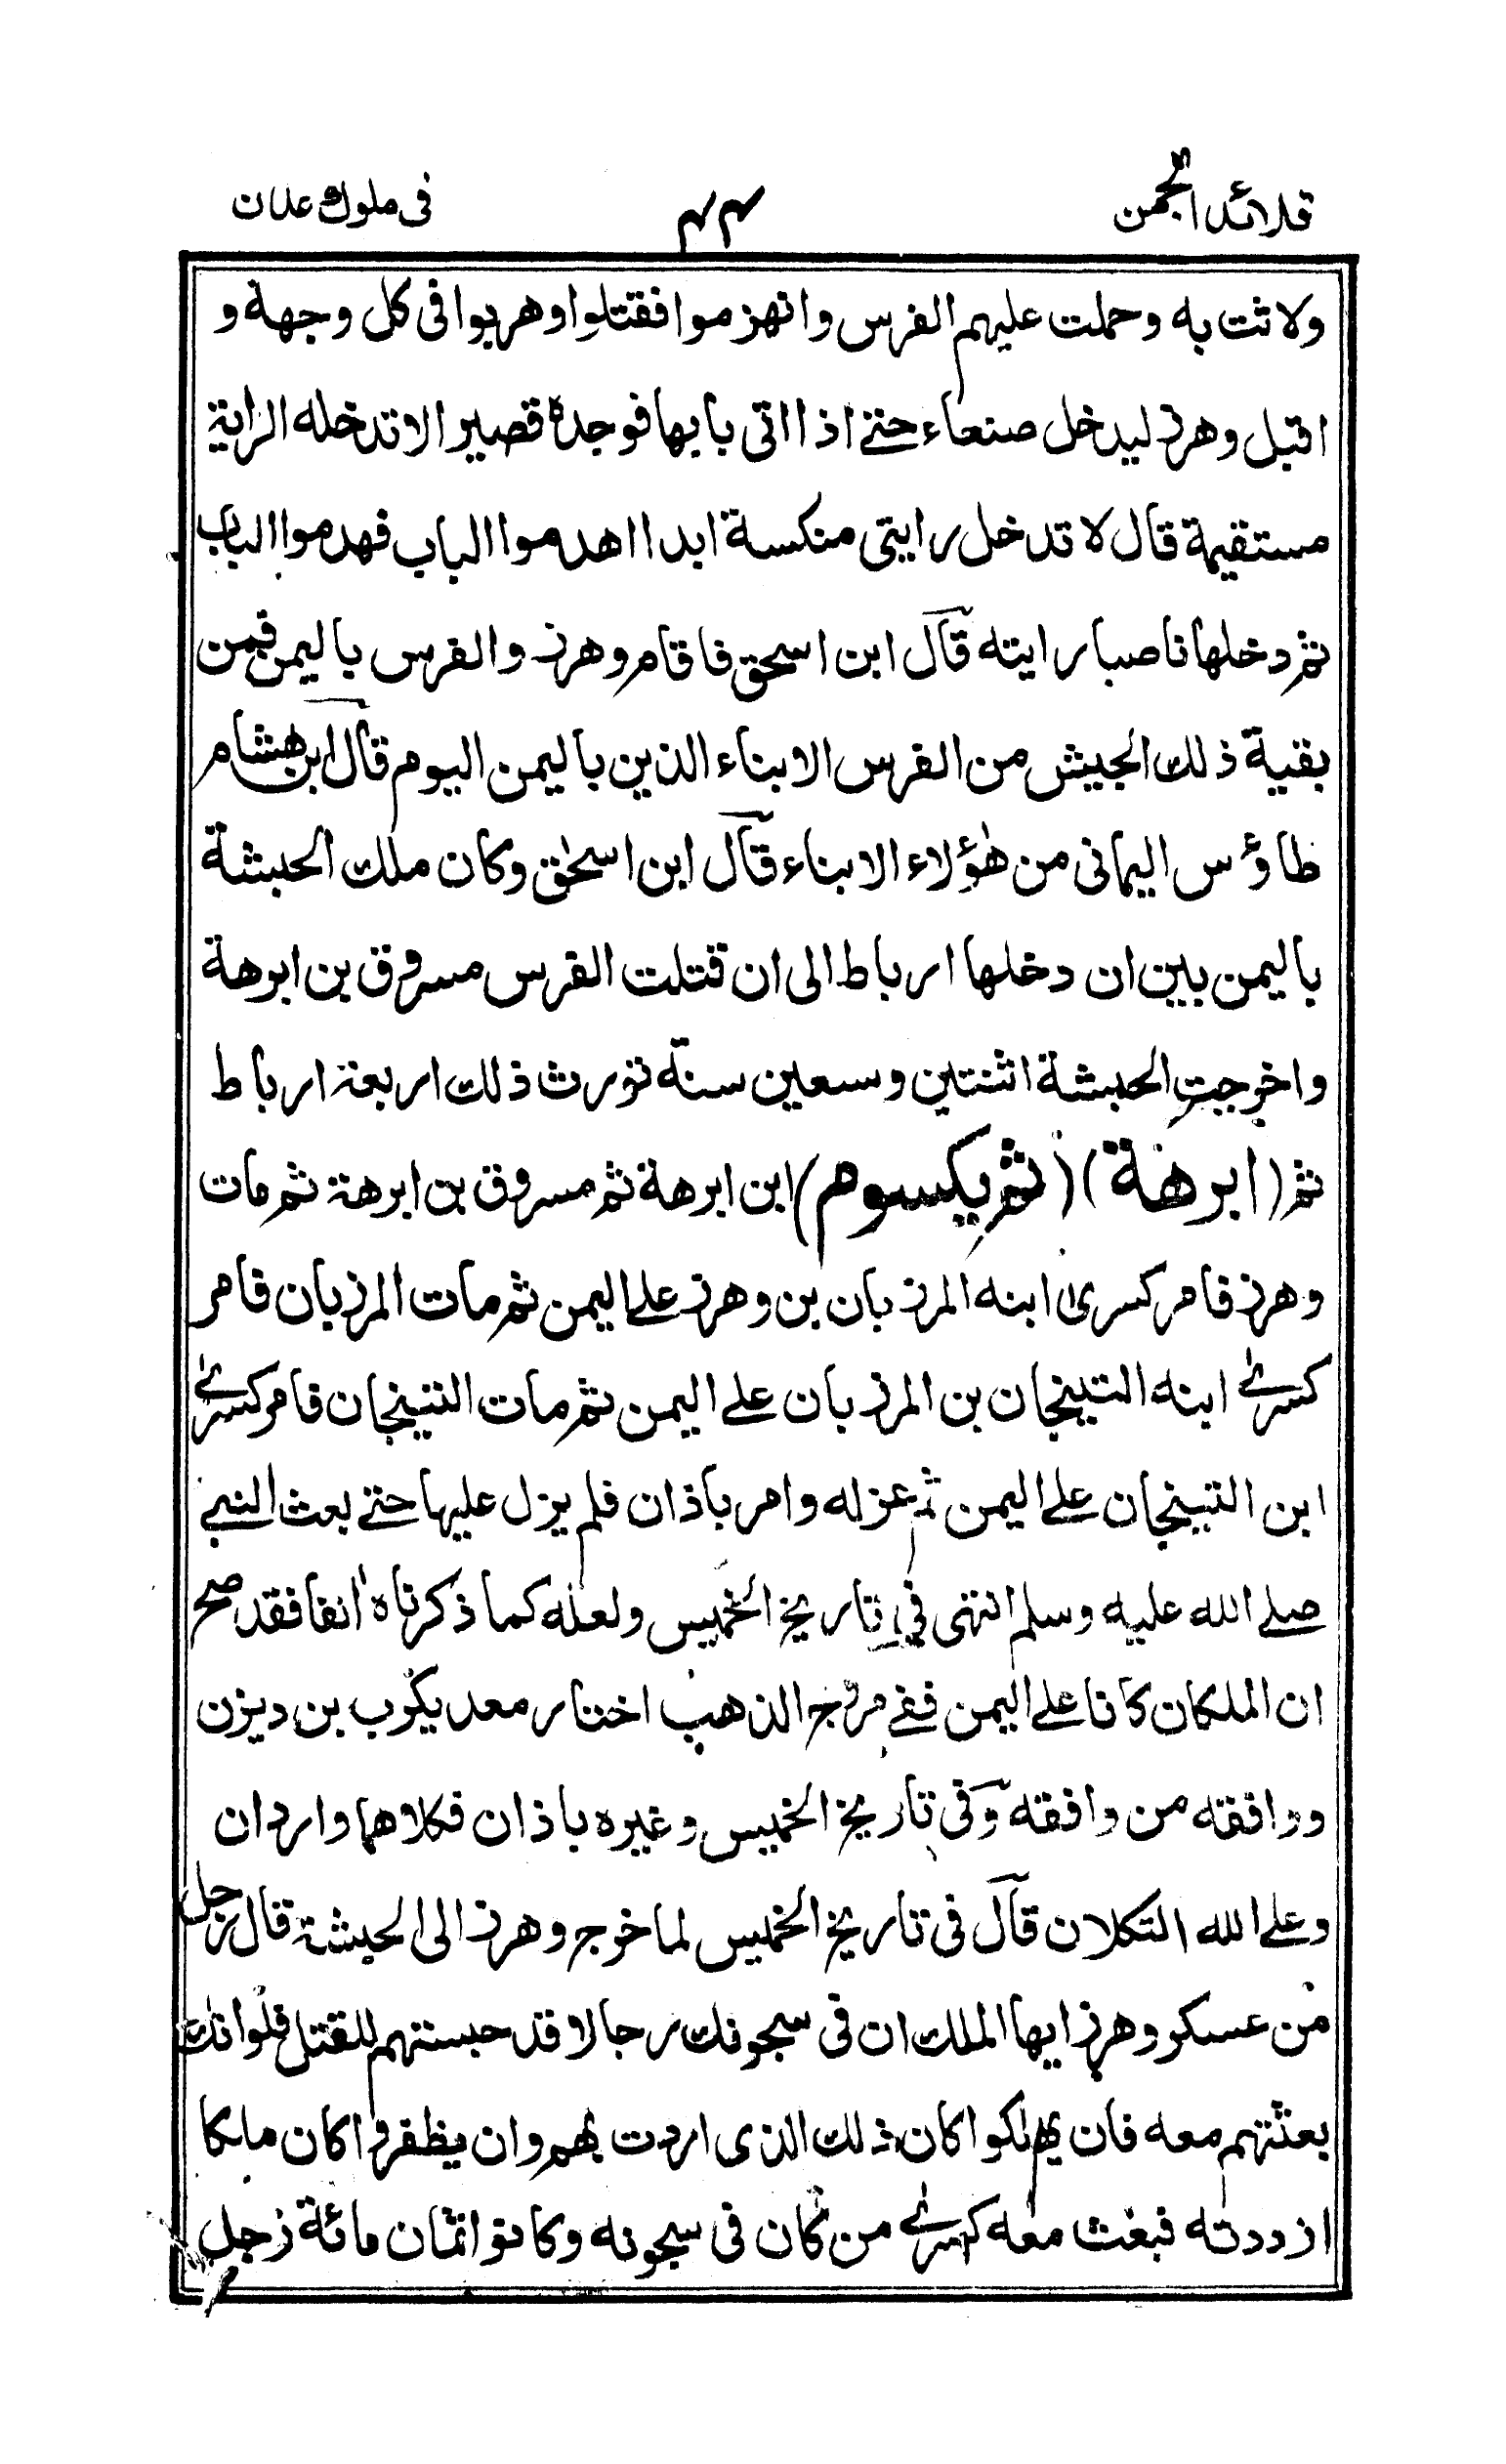 قلائد الجمن
۴۴
فی ملوك عدن
ولاثت به وحملت عليهم الفرس وانهزموا فقتلوا وهربوا فی كل وجهة و
اقبل وهرز ليدخل صنعاء حتے اذا اتی بابها فوجده قصيرا لا تدخله الراية
مستقيمة قال لا تدخل رايتی منكسة ابدا اهدموا الباب فهدموا الباب
ثم دخلها ناصبا رايته قال ابن اسحق فاقام وهرز والفرس باليمن فمن
بقية ذلك الجيش من الفرس الابناء الذين باليمن اليوم قال ابن هشام
طاؤس اليمانی من هٰؤلاء الابناء قال ابن اسحٰق وكان ملك الحبشة
باليمن بين ان دخلها ارباط الی ان قتلت الفرس مسروق بن ابرهة
واخرجت الحبشة اثنتين وسبعين سنة تورث ذلك اربعة ارباط
ثم (ابرهة) (ثم يكسوم) ابن ابرهة ثم مسروق بن ابرهة ثم مات
وهرز فامر كسریٰ ابنه المرزبان بن وهرز علے اليمن ثم مات المرزبان فامر
كسرےٰ ابنه التينجان بن المرزبان علے اليمن ثم مات التينجان فامر كسرےٰ
ابن التينجان علے اليمن ثم عزله وامر باذان فلم يزل عليها حتے بعث النبے
صلے الله عليه وسلم انتهی فی تاريخ الخميس ولعله كما ذكرناه اٰنفا فقد صح
ان الملكان كانا علے اليمن ففے مروج الذهب اختار معديكرب بن ديزن
ووافقه من وافقه وفی تاريخ الخميس وغيره باذان فكلاهما واردان
وعلے الله التكلان قال فی تاريخ الخميس لما خرج وهرز الی الحبشة قال رجل
من عسكر وهرز ايها الملك ان فی سجونك رجالا قد حبستهم للقتل فلو انك
بعثتهم معه فان يهلكوا كان ذلك الذی اردت بهم وان يظفروا كان ملكا
ازددته فبعث معه كسرےٰ من كان فی سجونه وكانوا ثمان مائة رجل